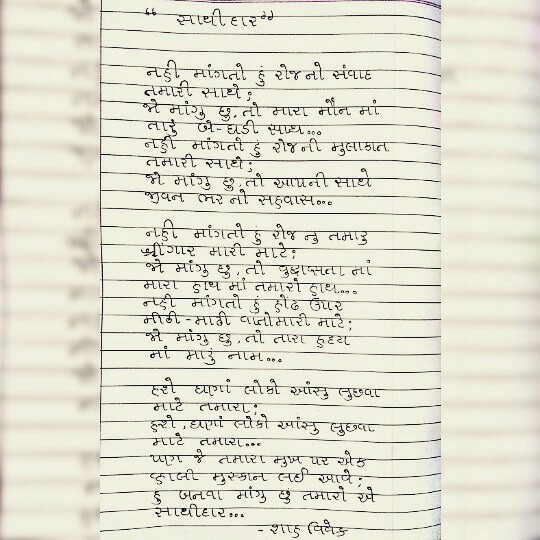 “ સાથીદાર”
નહી માંગતો હું રોજનો સંવાદ
તમારી સાથે;
જો માંગુ છુ,તો મારા મૌન માં
તારું બે-ઘડી સાથ...
નહી માંગતો હું રોજની મુલાકાત
તમારી સાથે;
જો માંગુ છુ,તો આપની સાથે
જીવન ભરનો સહવાસ...
નહી માંગતો હું રોજ નુ તમારુ
શ્રીંગાર મારી માટે;
જો માંગુ છુ,તો વૃદ્ધાસતા માં
મારા હાથ માં તમારો હાથ...
નહી માંગતો હું હોઠ ઉપર
મીઠી-માઠી વાતોમારી માટે;
જો માંગુ છુ,તો તારા હૃદય
માં મારું નામ...
હશે ઘણાં લોકો આંસુ લુછવા
માટે તમારા;
હશે,ઘણાં લોકો આંસુ લુછવા
માટે તમારા...
પણ જે તમારા મુખ પર એક
વ્હાલી મુસ્કાન લઈ આવે;
હુ બનવા માંગુ છું તમારો એ
સાથીદાર...
- શાહ વિવેક